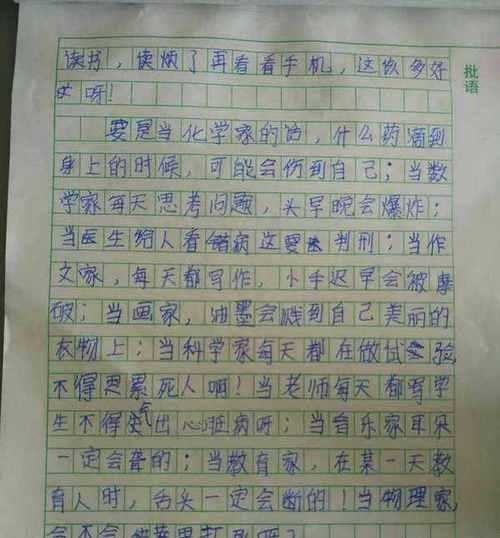 读书，读烦了再看看手机，这么多好
呀！
批语
要是当化学家的话，什么药滴到
身上的时候，可能会伤到自己；当数
学家每天思考问题，头早晚会爆炸；
当医生给人看错病这要判刑；当作
文家，每天都写作，小手迟早会被磨
破；当画家，油墨会溅到自己美丽的
衣物上；当科学家每天都在做试验，
不得累死人啊！当老师每天都写字
生不得气出心脏病呀；当音乐家耳朵
一定会聋的；当教育家，在某一天教
育人时，舌头一定会断的！当物理家，
会不会被苹果打